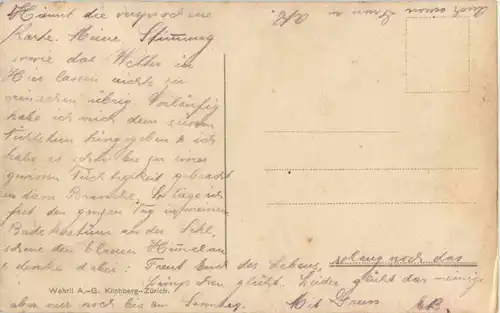 Nimmt die versprochene
Karte. Meine Stimmung
sowie das Wetter in
hier lassen nichts zu
wünschen übrig. Vorläufig
habe ich mich dem süssen
Nichtstun hingegeben & ich
habe es schon bis zu einer
gewissen Tüchtigkeit gebracht
in dem Branche. So liege ich
fast den ganzen Tag in meinem
Badekostüm an der Sihl,
schaue den blauen Himmel an
& denke dabei: Freut Euch des Lebens, solang noch das
Lämpchen glüht. Leider glüht das meinige
aber nur noch bis am Sonntag. Mit Gruss
Wehrli A.-G. Kilchberg-Zürich.